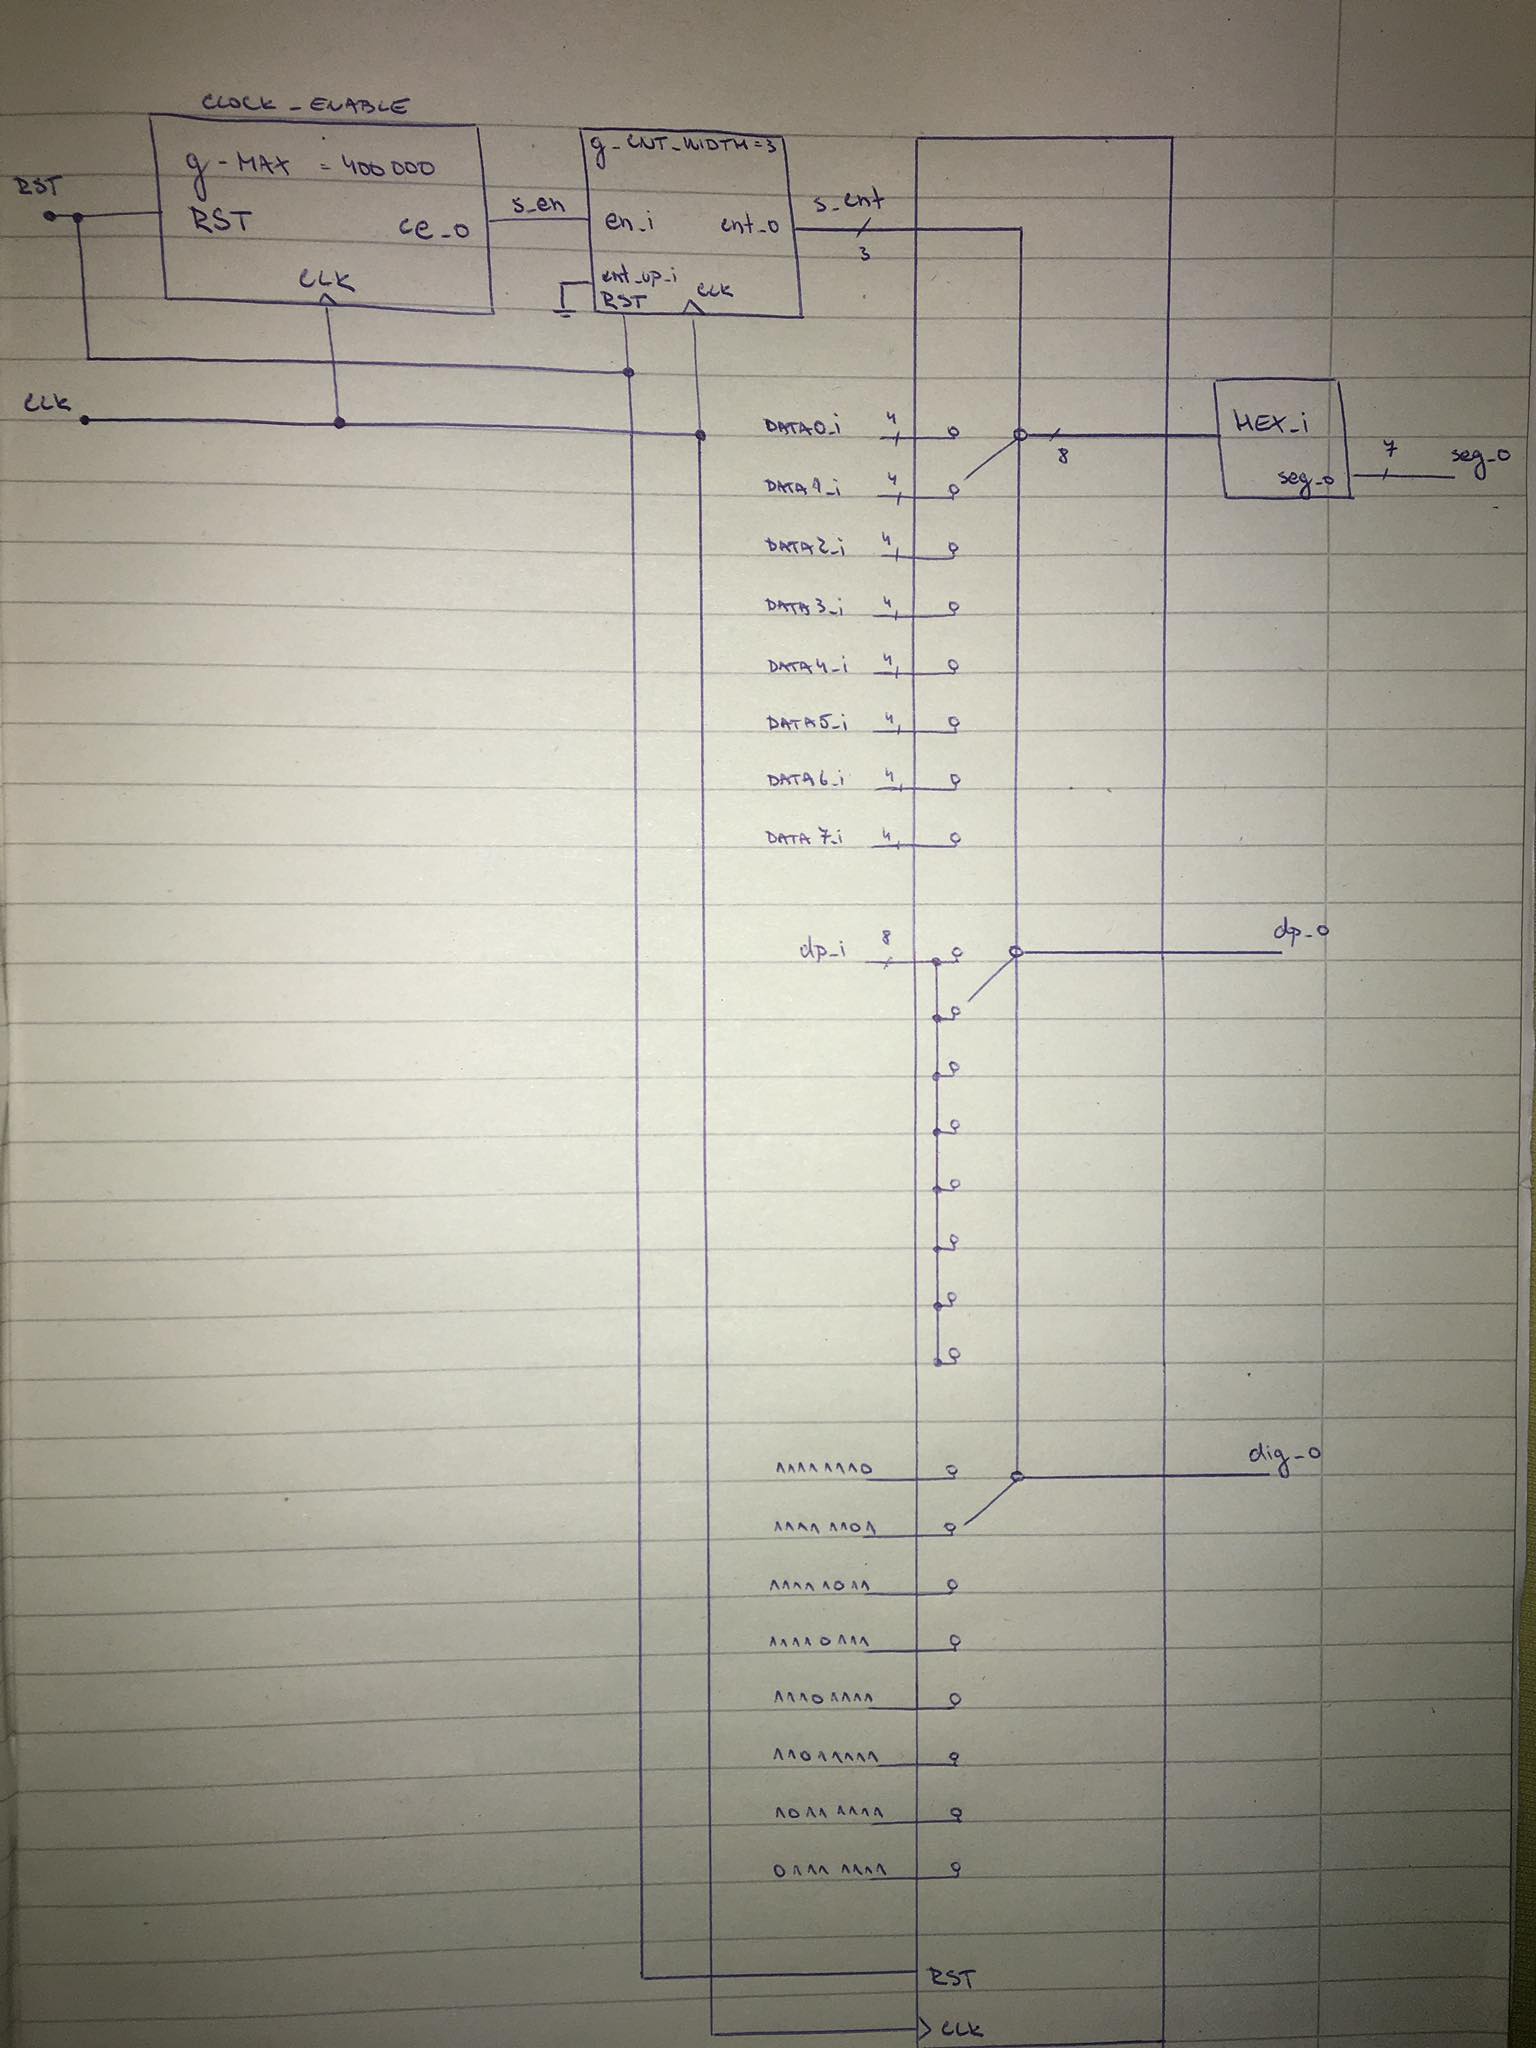 CLOCK_ENABLE
g-MAX = 400000
RST
RST
ce_o
CLK
s_en
g-CNT_WIDTH=3
en_i
cnt_o
cnt_up_i
RST
CLK
s_cnt
3
CLK
DATA0_i 4
8
HEX_i
seg_o
7
seg_o
DATA1_i 4
DATA2_i 4
DATA3_i 4
DATA4_i 4
DATA5_i 4
DATA6_i 4
DATA7_i 4
dp_i 8
dp_o
11111110
dig_o
1111 1101
1111 1011
1111 0111
11101111
11011111
1011 1111
0111 1111
RST
CLK